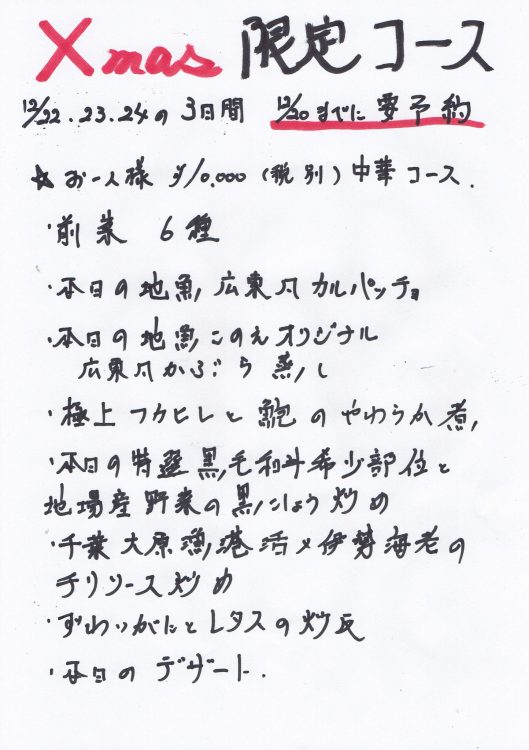 Xmas 限定コース
12/22.23.24の3日間 12/20までに要予約
☆お一人様 ¥10.000 (税別) 中華コース.
・前菜 6種
・本日の地魚 広東風カルパッチョ
・本日の地魚このえオリジナル
広東風かぶら蒸し
・極上フカヒレと鮑のやわらか煮
・本日の特選黒毛和牛希少部位と
地場産野菜の黒こしょう炒め
・千葉大原漁港活〆伊勢海老の
チリソース炒め
・ずわいがにとレタスの炒反
・本日の デザート.